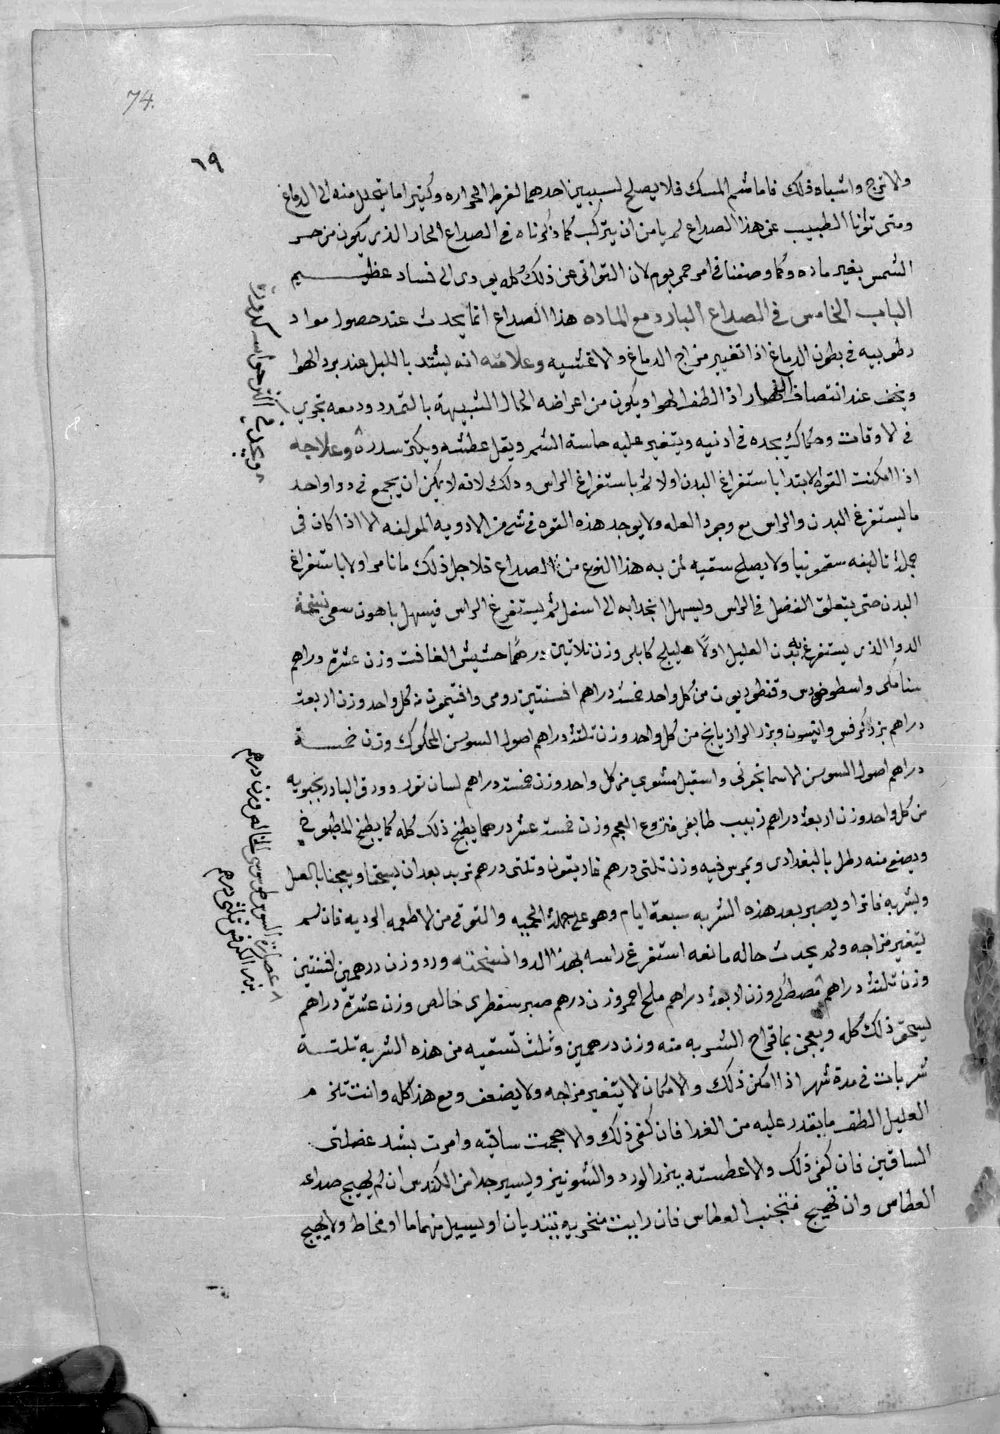 74.
٦٩
والاترج واشباه ذلك فاما شم المسك فلا يصلح لسببين احدهما لفرط الحراره وكثير اما يتحلل منه الى الدماغ
ومتى توانا الطبيب عن هذا الصداع لم يامن ان يتركب كما ذكرناه في الصداع الحار الذى يكون من حر
الشمس بغير ماده وكما وصفنا في امر حمى يوم لان التوانى عن ذلك كله يودى الى فساد عظيم
الباب الخامس في الصداع البارد مع الماده هذا الصداع انما يحدث عند حصول مواد
رطوبيه في بطون الدماغ اذا تغير مزاج الدماغ والاغشيه وعلامته انه يشتد بالليل عند برد الهوا
ويخف عند انتصاف النهار اذا لطف الهوا ويكون من اعراضه الحال الشبيهة بالتمدد ودمعه تجرى
في الاوقات وحكاك يجده في اذنيه ويتغير عليه حاسة الشم ويقل عطشه ويكثر سدره وعلاجه
اذا امكنت القوة الابتدا باستفراغ البدن اولا ثم باستفراغ الراس وذلك لانه لا يمكن ان يجمع في دوا واحد
ما يستفرغ البدن والراس مع وجود العله ولا يوجد هذه القوه في شى من الادويه المولفه الا اذا كان فى
جملة تاليفه سقمونيا ولا يصلح سقيه لمن به هذا النوع من الصداع فلاجل ذلك ما نامر اولا باستفراغ
البدن حتى يتعلق الفضل في الراس ويسهل انجذابه الى اسفل ثم يستفرغ الراس فيسهل باهون سعى نسخة
الدوا الذى يستفرغ به بدن العليل اولا هليلج كابلى وزن ثلاثين درهما حشيش الغافت وزن عشرة دراهم
سنا مكى واسطوخودس وقنطوريون من كل واحد خمسة دراهم افسنتين رومى وافتيمون من كل واحد وزن اربعة
دراهم بزر كرفس وانيسون وبزر الرازيانج من كل واحد وزن ثلثة دراهم اصول السوس المحكوك وزن خمسة
دراهم اصول السوسن الاسمانجونى واسقيل مشوي من كل واحد وزن خمسة دراهم لسان ثور وورق البادرنجبويه
من كل واحد وزن اربعة دراهم زبيب طايفى منزوع العجم وزن خمسة عشر درهما يطبخ ذلك كله كما يطبخ المطبوخ
ويصنع منه رطل بالبغدادى ويمرس فيه وزن ثلثى درهم غاريقون وثلثى درهم تربد بعد ان يسحقا ويعجنا بالعسل
ويشربه فاترا ويصبر بعد هذه الشربه سبعة ايام وهو على جملة الحميه والتوقى من الاطعمه الرديه فان لم
يتغير مزاجه ولم يحدث حاله مانعه استفرغ راسه بهذا الدوا نسخته ورد وزن درهمين افسنتين
وزن ثلثة دراهم مصطكى وزن اربعة دراهم ملح احمر وزن درهم صبر سقطرى خالص وزن عشرة دراهم
يسحق ذلك كله ويعجن بماقراح الشربه منه وزن درهمين وثلث تسقيه من هذه الشربة ثلثة
شربات في مدة شهر اذا امكن ذلك والامكان لا يتغير مزاجه ولا يضعف ومع هذا كله وانت تلزم
العليل الطف ما يقدر عليه من الغدا فان كفى ذلك والا حجمت ساقيه وامرت بشد عضلتى
الساقين فان كفى ذلك والا عطسته ببزر الورد والشونيز ويسير جدا من الكندس ان لم يهيج صداعه
العطاس وان تهيج فتجنب العطاس فان رايت منخريه تنديان او يسيل منهما ما او مخاط ولا يهيج
ويجد في اكثر حواسه كدورة
عصارة السوس طرسوسى الخالص وزن درهم
بزر الكرفس ثلثى درهم